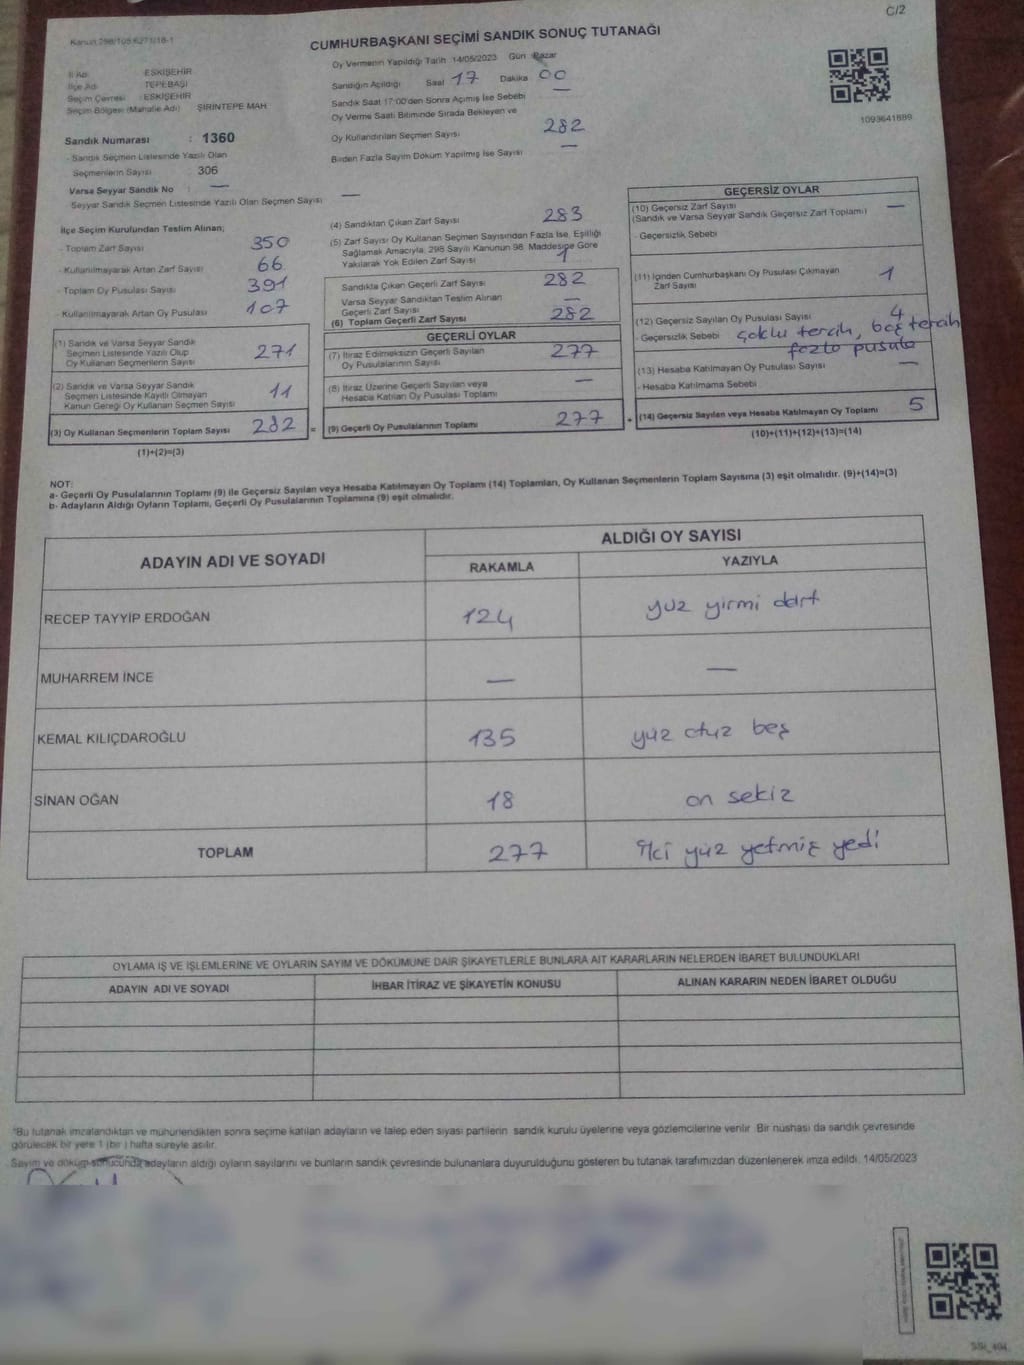 C/2
Kanun 298/105 6271/18-1
CUMHURBAŞKANI SEÇİMİ SANDIK SONUÇ TUTANAĞI
İl Adı : ESKİŞEHİR
İlçe Adı : TEPEBAŞI
Seçim Çevresi : ESKİŞEHİR
Seçim Bölgesi (Mahalle Adı) ŞİRİNTEPE MAH
Sandık Numarası : 1360
- Sandık Seçmen Listesinde Yazılı Olan
Seçmenlerin Sayısı : 306
Varsa Seyyar Sandık No : —
Seyyar Sandık Seçmen Listesinde Yazılı Olan Seçmen Sayısı —
Oy Vermenin Yapıldığı Tarih 14/05/2023 Gün Pazar
Sandığın Açıldığı Saat 17 Dakika 00
Sandık Saat 17:00'den Sonra Açılmış İse Sebebi —
Oy Verme Saati Bitiminde Sırada Bekleyen ve
Oy Kullandırılan Seçmen Sayısı 282
Birden Fazla Sayım Döküm Yapılmış İse Sayısı —
1093641889
İlçe Seçim Kurulundan Teslim Alınan;
- Toplam Zarf Sayısı 350
- Kullanılmayarak Artan Zarf Sayısı 66
- Toplam Oy Pusulası Sayısı 391
- Kullanılmayarak Artan Oy Pusulası 107
(1) Sandık ve Varsa Seyyar Sandık
Seçmen Listesinde Yazılı Olup
Oy Kullanan Seçmenlerin Sayısı 271
(2) Sandık ve Varsa Seyyar Sandık
Seçmen Listesinde Kayıtlı Olmayan
Kanun Gereği Oy Kullanan Seçmen Sayısı 11
(3) Oy Kullanan Seçmenlerin Toplam Sayısı 282 =
(1)+(2)=(3)
(4) Sandıktan Çıkan Zarf Sayısı 283
(5) Zarf Sayısı Oy Kullanan Seçmen Sayısından Fazla İse, Eşitliği
Sağlamak Amacıyla, 298 Sayılı Kanunun 98. Maddesine Göre
Yakılarak Yok Edilen Zarf Sayısı 1
Sandıkta Çıkan Geçerli Zarf Sayısı 282
Varsa Seyyar Sandıktan Teslim Alınan
Geçerli Zarf Sayısı —
(6) Toplam Geçerli Zarf Sayısı 282
GEÇERLİ OYLAR
(7) İtiraz Edilmeksizin Geçerli Sayılan
Oy Pusulalarının Sayısı 277
(8) İtiraz Üzerine Geçerli Sayılan veya
Hesaba Katılan Oy Pusulası Toplamı —
(9) Geçerli Oy Pusulalarının Toplamı 277 +
GEÇERSİZ OYLAR
(10) Geçersiz Zarf Sayısı —
(Sandık ve Varsa Seyyar Sandık Geçersiz Zarf Toplamı)
- Geçersizlik Sebebi
(11) İçinden Cumhurbaşkanı Oy Pusulası Çıkmayan
Zarf Sayısı 1
(12) Geçersiz Sayılan Oy Pusulası Sayısı 4
- Geçersizlik Sebebi çoklu tercih, boş tercih
fazla pusula
(13) Hesaba Katılmayan Oy Pusulası Sayısı —
- Hesaba Katılmama Sebebi
(14) Geçersiz Sayılan veya Hesaba Katılmayan Oy Toplamı 5
(10)+(11)+(12)+(13)=(14)
NOT:
a- Geçerli Oy Pusulalarının Toplamı (9) ile Geçersiz Sayılan veya Hesaba Katılmayan Oy Toplamı (14) Toplamları, Oy Kullanan Seçmenlerin Toplam Sayısına (3) eşit olmalıdır. (9)+(14)=(3)
b- Adayların Aldığı Oyların Toplamı, Geçerli Oy Pusulalarının Toplamına (9) eşit olmalıdır.
ADAYIN ADI VE SOYADI
ALDIĞI OY SAYISI
RAKAMLA YAZIYLA
RECEP TAYYİP ERDOĞAN 124 yüz yirmi dört
MUHARREM İNCE — —
KEMAL KILIÇDAROĞLU 135 yüz otuz beş
SİNAN OĞAN 18 on sekiz
TOPLAM 277 iki yüz yetmiş yedi
OYLAMA İŞ VE İŞLEMLERİNE VE OYLARIN SAYIM VE DÖKÜMÜNE DAİR ŞİKAYETLERLE BUNLARA AİT KARARLARIN NELERDEN İBARET BULUNDUKLARI
ADAYIN ADI VE SOYADI İHBAR İTİRAZ VE ŞİKAYETİN KONUSU ALINAN KARARIN NEDEN İBARET OLDUĞU
*Bu tutanak imzalandıktan ve mühürlendikten sonra seçime katılan adayların ve talep eden siyasi partilerin sandık kurulu üyelerine veya gözlemcilerine verilir. Bir nüshası da sandık çevresinde
görülecek bir yere 1 (bir ) hafta süreyle asılır.
Sayım ve döküm sonucunda adayların aldığı oyların sayılarını ve bunların sandık çevresinde bulunanlara duyurulduğunu gösteren bu tutanak tarafımızdan düzenlenerek imza edildi. 14/05/2023